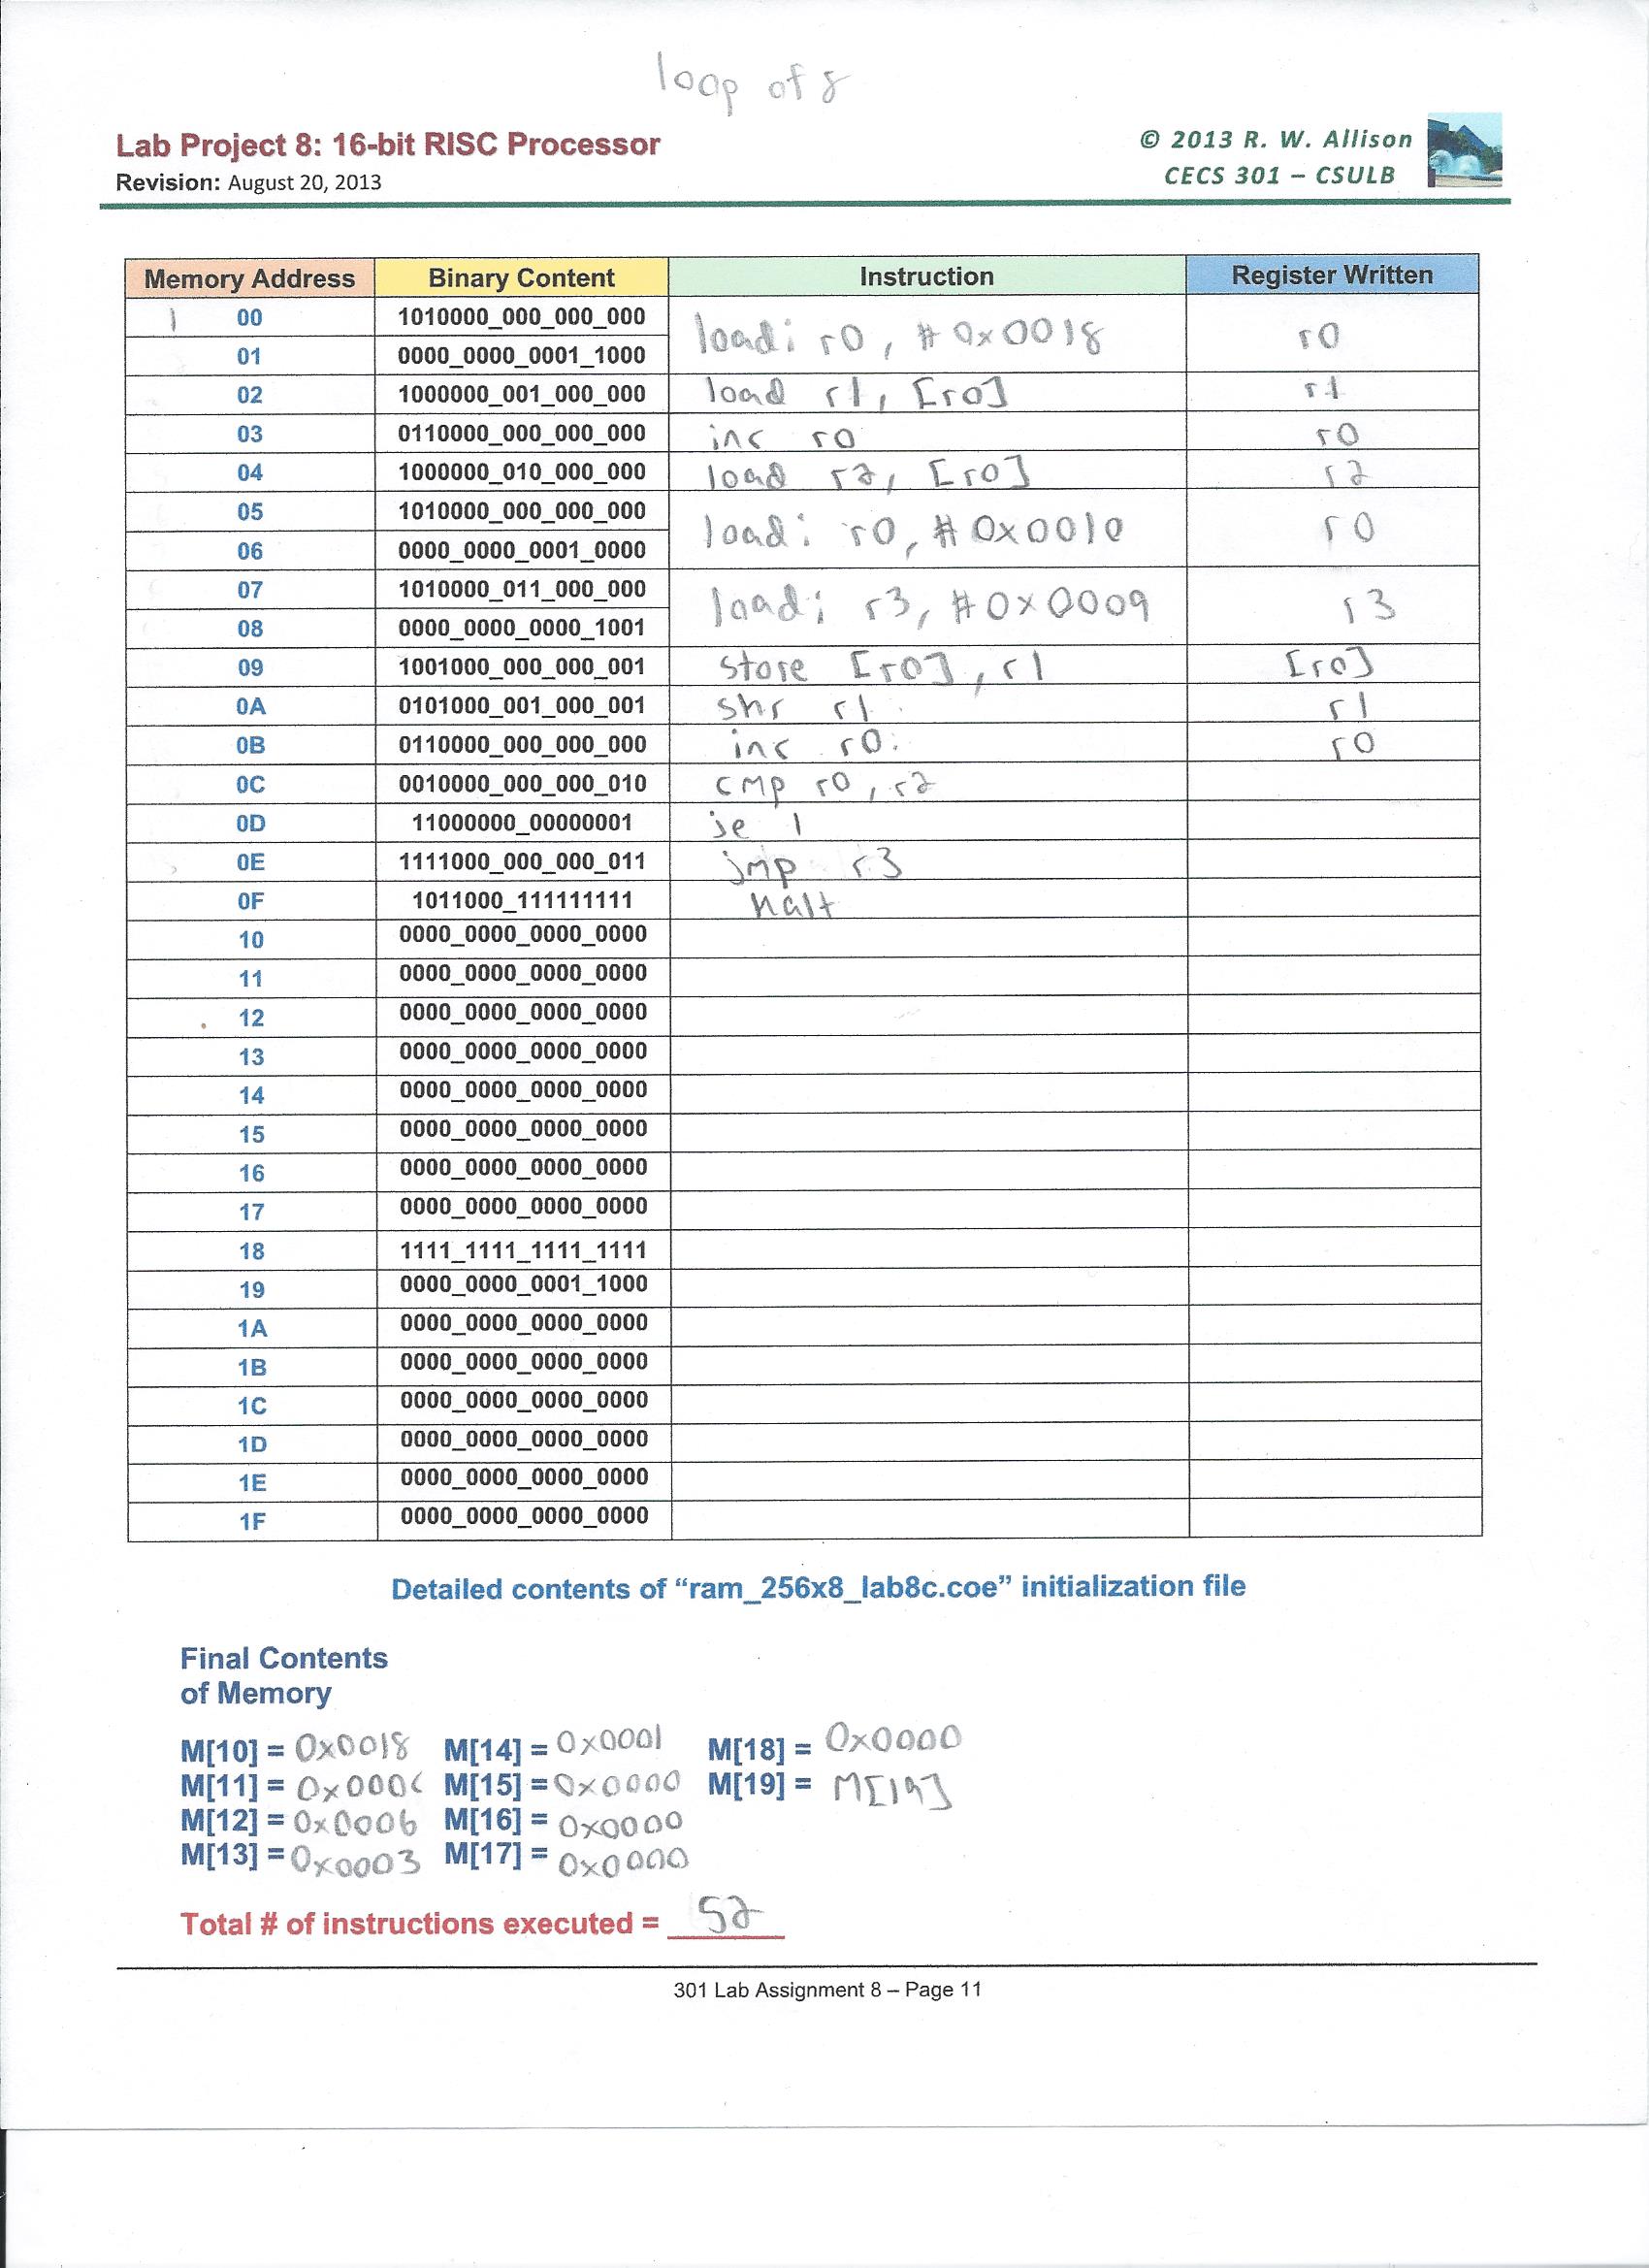 loop of 8
Lab Project 8: 16-bit RISC Processor
© 2013 R. W. Allison
Revision: August 20, 2013
CECS 301 – CSULB
Memory Address Binary Content Instruction Register Written
1 00 1010000_000_000_000 loadi r0, #0x0018 r0
01 0000_0000_0001_1000
02 1000000_001_000_000 load r1, [r0] r1
03 0110000_000_000_000 inc r0 r0
04 1000000_010_000_000 load r2, [r0] r2
05 1010000_000_000_000 loadi r0, #0x0010 r0
06 0000_0000_0001_0000
07 1010000_011_000_000 loadi r3, #0x0009 r3
08 0000_0000_0000_1001
09 1001000_000_000_001 store [r0], r1 [r0]
0A 0101000_001_000_001 shr r1 r1
0B 0110000_000_000_000 inc r0 r0
0C 0010000_000_000_010 cmp r0, r2
0D 11000000_00000001 je 1
0E 1111000_000_000_011 jmp r3
0F 1011000_111111111 halt
10 0000_0000_0000_0000
11 0000_0000_0000_0000
12 0000_0000_0000_0000
13 0000_0000_0000_0000
14 0000_0000_0000_0000
15 0000_0000_0000_0000
16 0000_0000_0000_0000
17 0000_0000_0000_0000
18 1111_1111_1111_1111
19 0000_0000_0001_1000
1A 0000_0000_0000_0000
1B 0000_0000_0000_0000
1C 0000_0000_0000_0000
1D 0000_0000_0000_0000
1E 0000_0000_0000_0000
1F 0000_0000_0000_0000
Detailed contents of “ram_256x8_lab8c.coe” initialization file
Final Contents
of Memory
M[10] = 0x0018 M[14] = 0x0001 M[18] = 0x0000
M[11] = 0x000C M[15] = 0x0000 M[19] = M[19]
M[12] = 0x0006 M[16] = 0x0000
M[13] = 0x0003 M[17] = 0x0000
Total # of instructions executed = 52
301 Lab Assignment 8 – Page 11